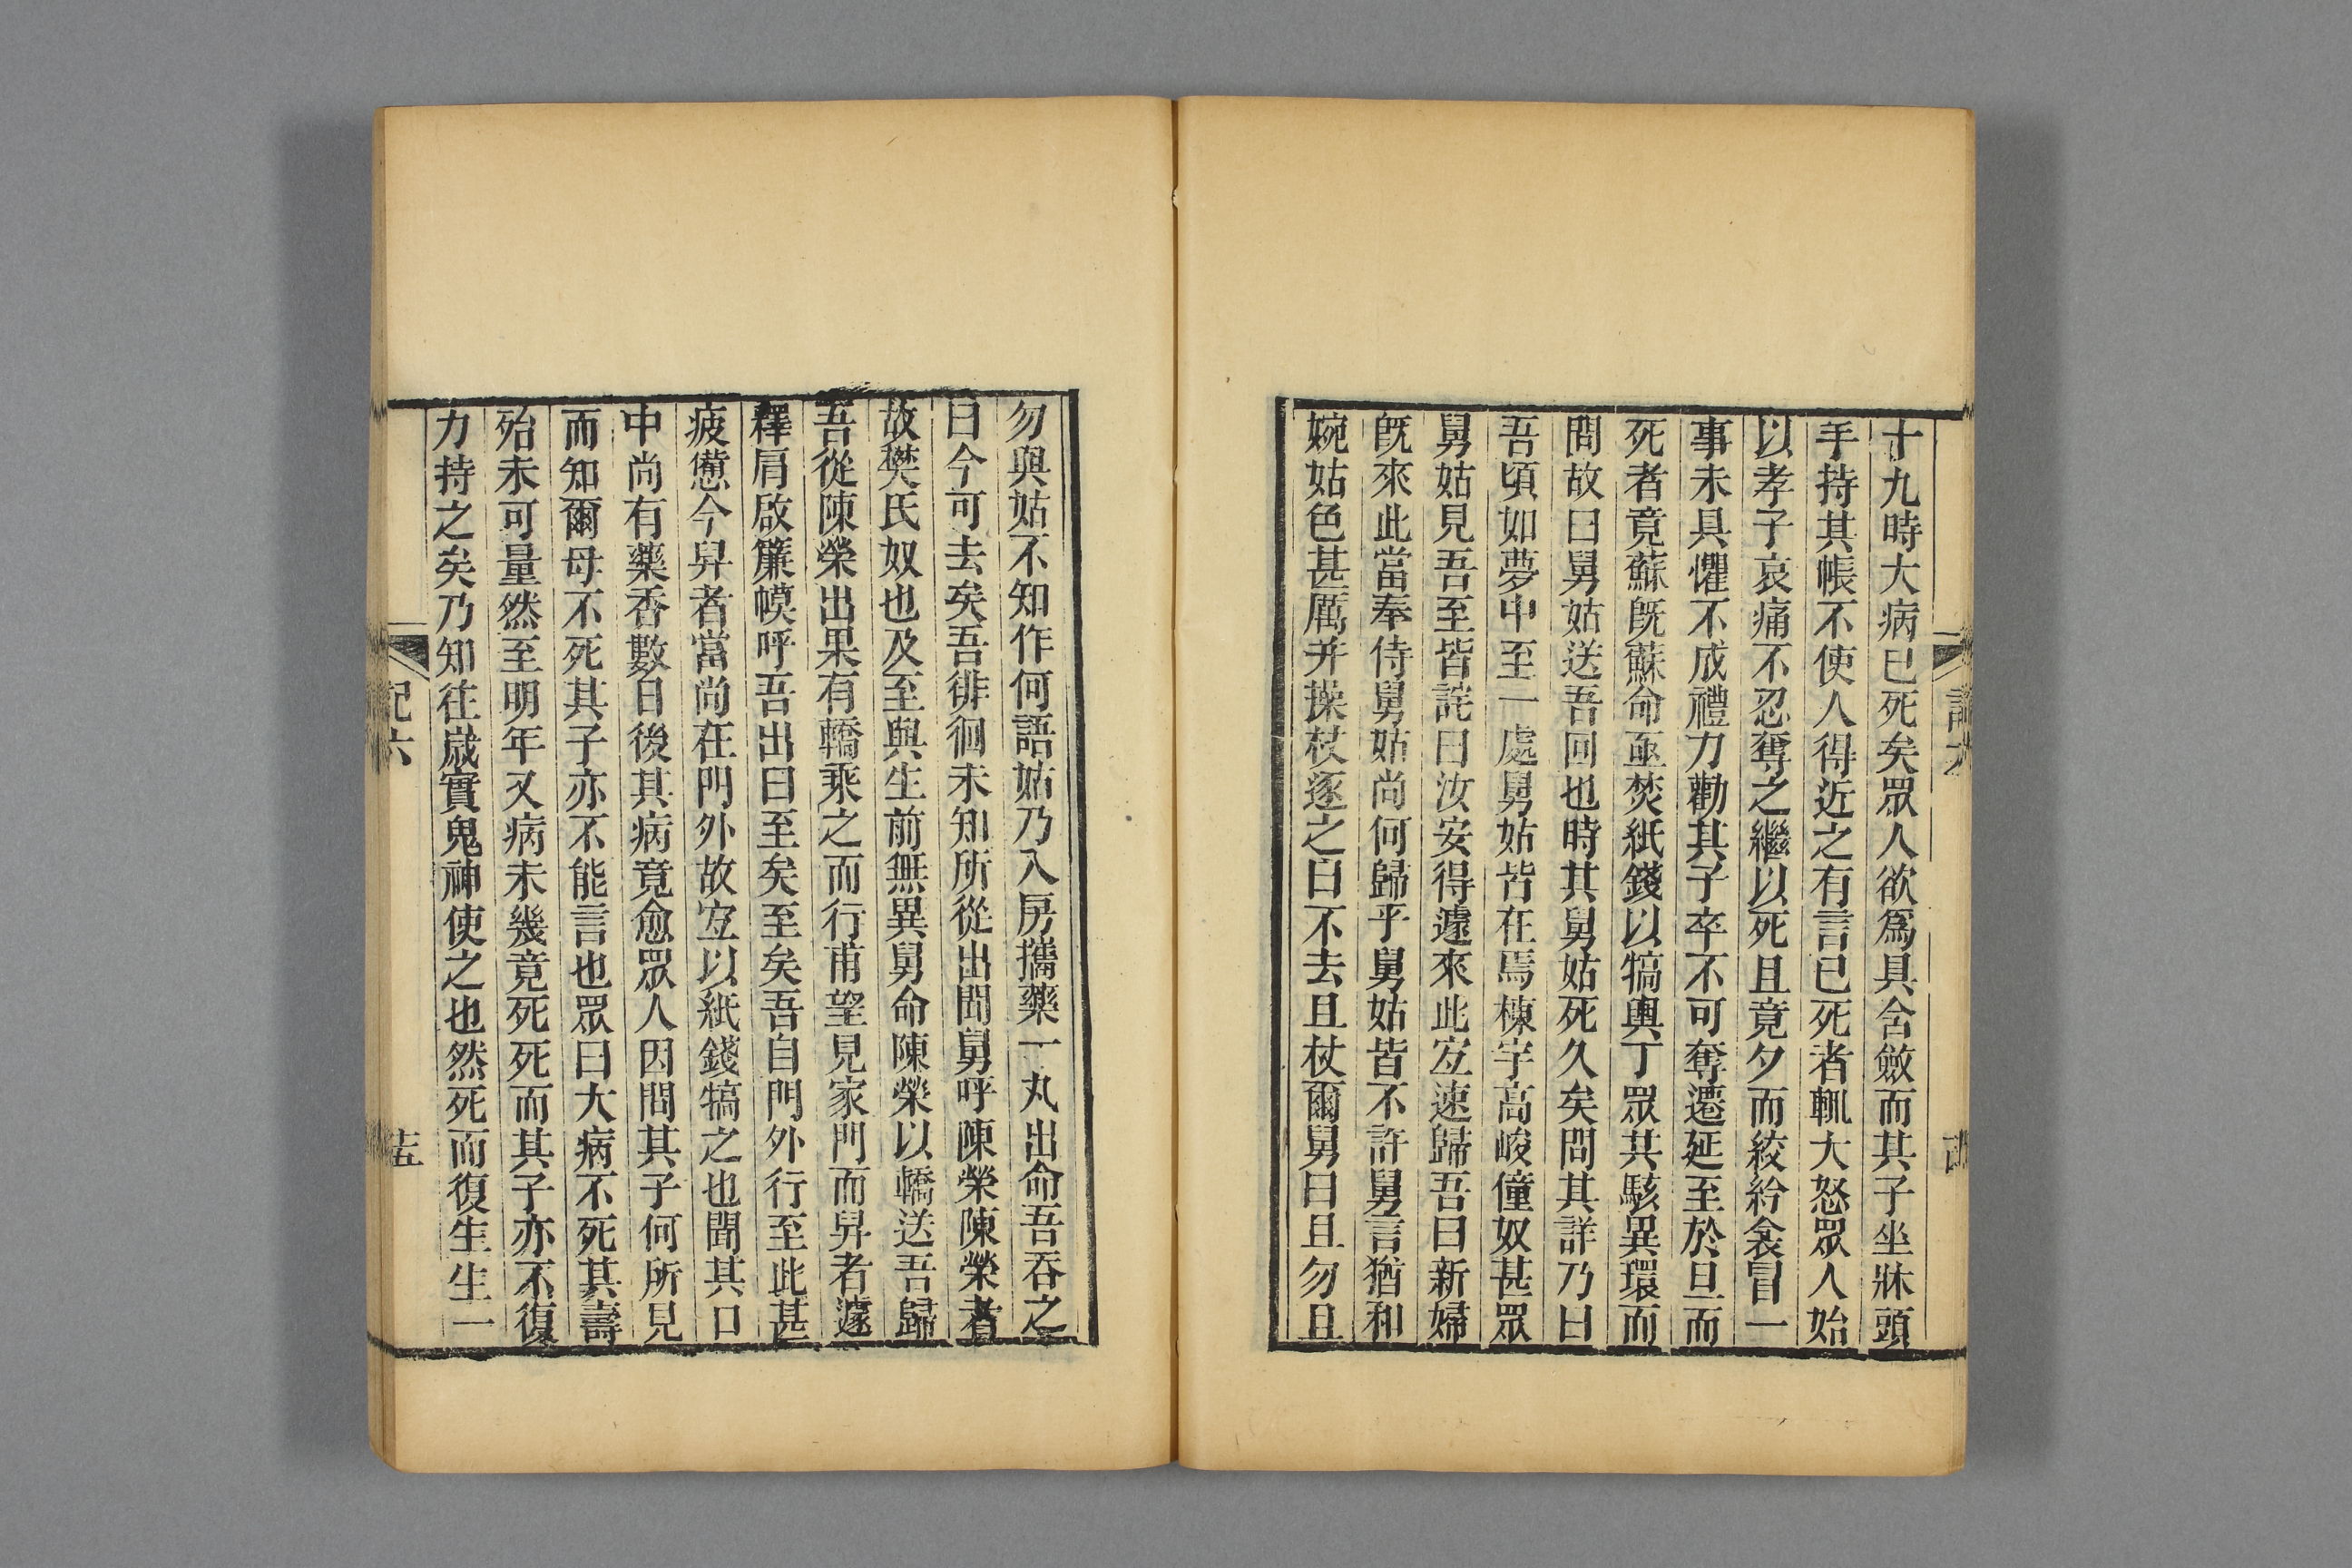 十九時大病已死矣眾人欲爲具含斂而其子坐牀頭
手持其帳不使人得近之有言已死者輒大怒眾人始
以孝子哀痛不忍奪之繼以死且竟夕而絞紟衾冒一
事未具懼不成禮力勸其子卒不可奪遷延至於旦而
死者竟蘇旣蘇命亟焚紙錢以犒輿丁眾共駭異環而
問故曰舅姑送吾回也時其舅姑死久矣問其詳乃曰
吾頃如夢中至一處舅姑皆在焉棟宇高峻僮奴甚眾
舅姑見吾至皆詫曰汝安得遽來此宐速歸吾曰新婦
旣來此當奉侍舅姑尚何歸乎舅姑皆不許舅言猶和
婉姑色甚厲并操杖逐之曰不去且杖爾舅曰且勿且
記六
勿與姑不知作何語姑乃入房攜藥一丸出命吾吞之
曰今可去矣吾徘徊未知所從出聞舅呼陳榮陳榮者
故樊氏奴也及至與生前無異舅命陳榮以轎送吾歸
吾從陳榮出果有轎乘之而行甫望見家門而舁者遽
釋肩啟簾幙呼吾出曰至矣至矣吾自門外行至此甚
疲憊今舁者當尚在門外故宐以紙錢犒之也聞其口
中尚有藥香數日後其病竟愈眾人因問其子何所見
而知爾母不死其子亦不能言也眾曰大病不死其壽
殆未可量然至明年又病未幾竟死死而其子亦不復
力持之矣乃知往歲實鬼神使之也然死而復生生一
記六
十五